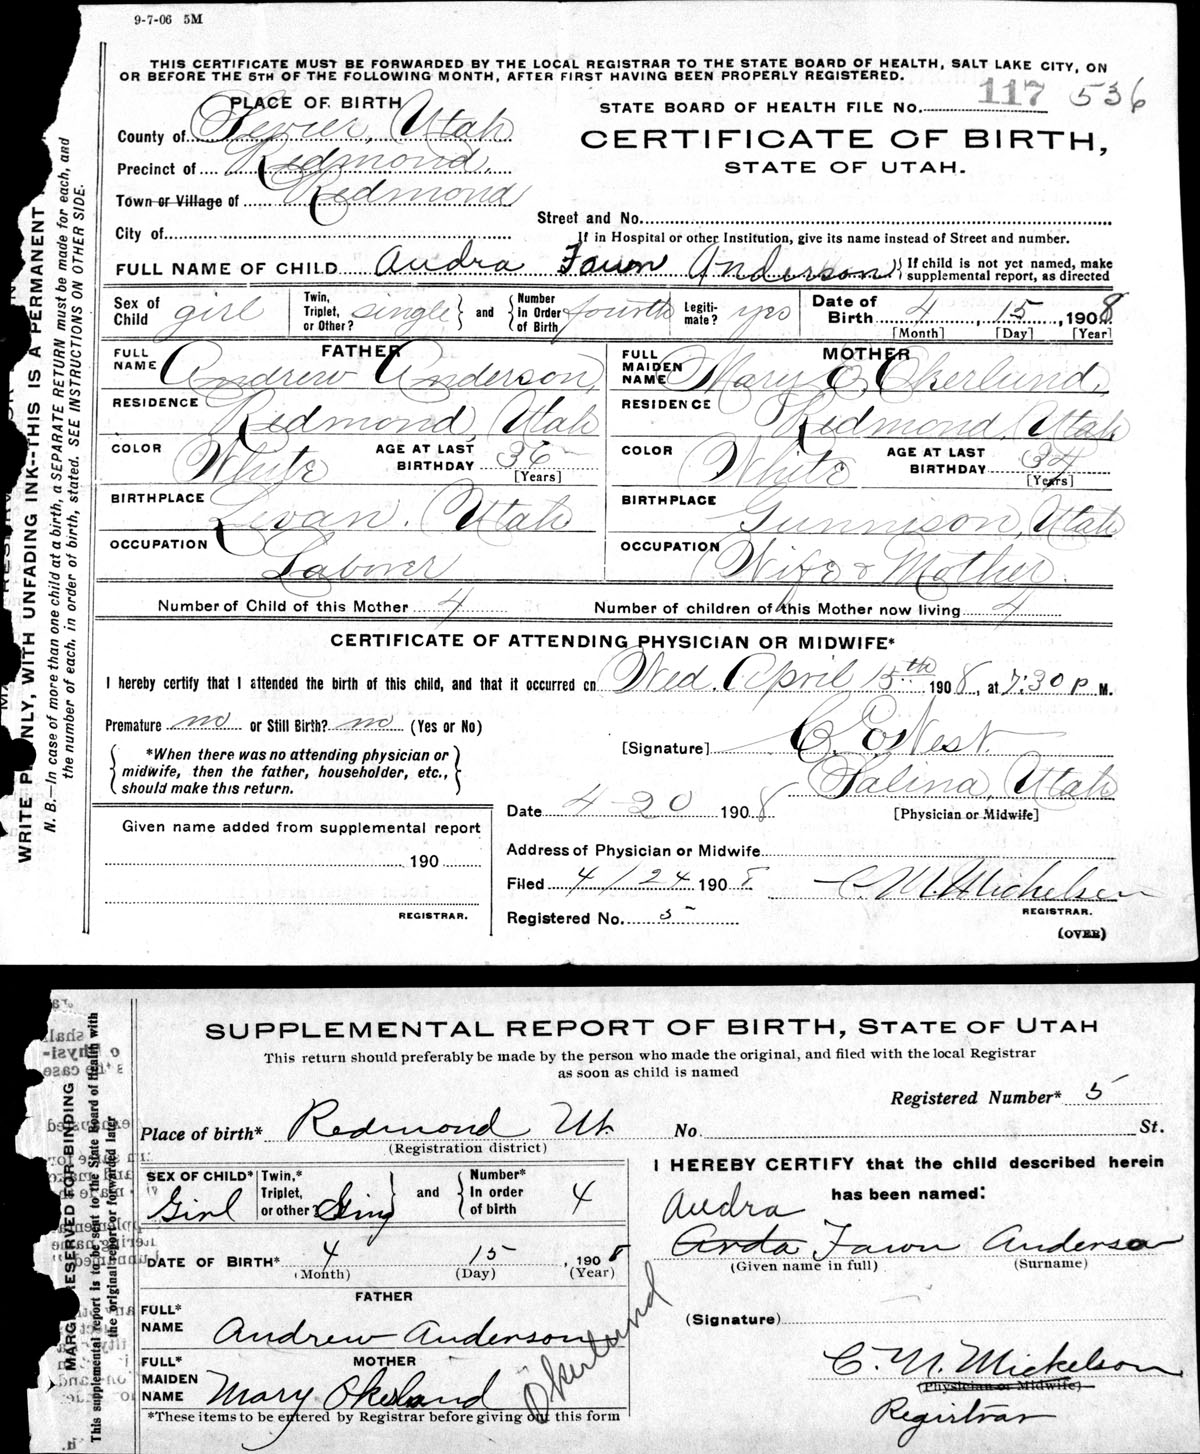 9-7-06 5M
THIS CERTIFICATE MUST BE FORWARDED BY THE LOCAL REGISTRAR TO THE STATE BOARD OF HEALTH, SALT LAKE CITY, ON
OR BEFORE THE 5TH OF THE FOLLOWING MONTH, AFTER FIRST HAVING BEEN PROPERLY REGISTERED.
PLACE OF BIRTH
STATE BOARD OF HEALTH FILE NO. 117 536
County of Sevier, Utah
CERTIFICATE OF BIRTH,
STATE OF UTAH.
Precinct of Redmond,
Town or Village of Redmond
Street and No.
City of
If in Hospital or other Institution, give its name instead of Street and number.
FULL NAME OF CHILD Audra Fawn Anderson } If child is not yet named, make supplemental report, as directed
Sex of Child girl Twin, Triplet, or Other? single } and { Number in Order of Birth fourth Legitimate? yes Date of Birth 4 , 15 , 1908
[Month] [Day] [Year]
FATHER
FULL NAME Andrew Anderson,
RESIDENCE Redmond, Utah
COLOR White AGE AT LAST BIRTHDAY 36
[Years]
BIRTHPLACE Levan, Utah
OCCUPATION Laborer
MOTHER
FULL MAIDEN NAME Mary E. Okerlund,
RESIDENCE Redmond, Utah
COLOR White AGE AT LAST BIRTHDAY 34
[Years]
BIRTHPLACE Gunnison, Utah
OCCUPATION Wife & Mother.
Number of Child of this Mother 4 Number of children of this Mother now living 4
CERTIFICATE OF ATTENDING PHYSICIAN OR MIDWIFE*
I hereby certify that I attended the birth of this child, and that it occurred on Wed. April 15th 1908, at 7:30 P M.
Premature no or Still Birth? no (Yes or No)
*When there was no attending physician or
midwife, then the father, householder, etc.,
should make this return.
[Signature] C. E. West.
Salina, Utah
[Physician or Midwife]
Date 4-20 1908
Given name added from supplemental report
190
REGISTRAR.
Address of Physician or Midwife
Filed 4/24 1908 C. M. Mickelsen
REGISTRAR.
Registered No. 5
(OVER)
WRITE PLAINLY, WITH UNFADING INK--THIS IS A PERMANENT
N. B.—In case of more than one child at a birth, a SEPARATE RETURN must be made for each, and
the number of each, in order of birth, stated. SEE INSTRUCTIONS ON OTHER SIDE.
SUPPLEMENTAL REPORT OF BIRTH, STATE OF UTAH
This return should preferably be made by the person who made the original, and filed with the local Registrar
as soon as child is named
Registered Number* 5
Place of birth* Redmond Ut. No. St.
(Registration district)
SEX OF CHILD* Girl Twin,* Triplet, or other? Sing } and { Number* In order of birth 4
DATE OF BIRTH* 4 15 , 1908
(Month) (Day) (Year)
FATHER
FULL* NAME Andrew Anderson
MOTHER
FULL* MAIDEN NAME Mary Okerlund
Okerlund
*These items to be entered by Registrar before giving out this form
I HEREBY CERTIFY that the child described herein
has been named:
Audra
Arda Fawn Anderson
(Given name in full) (Surname)
(Signature)
C. M. Mickelson
(Physician or Midwife)
Registrar
MARGIN RESERVED FOR BINDING
This supplemental report is to be sent to the State Board of Health with
the original report or forwarded later